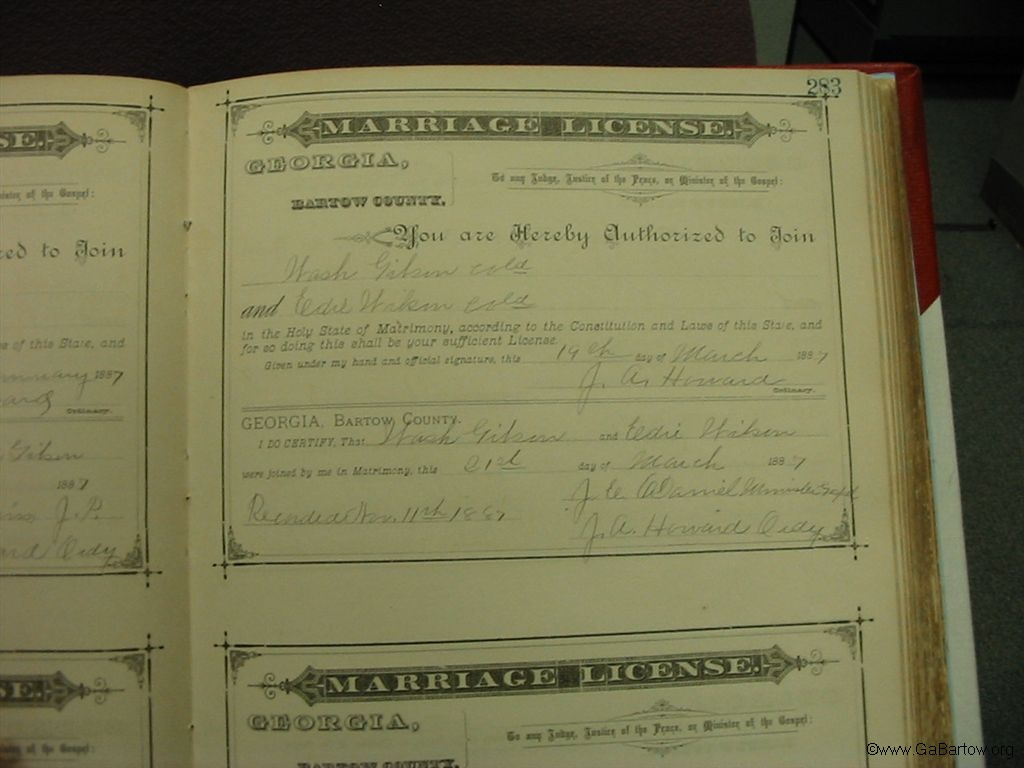 283
MARRIAGE LICENSE.
GEORGIA,
BARTOW COUNTY.
To any Judge, Justice of the Peace, or Minister of the Gospel:
You are Hereby Authorized to Join
Wash Gibson cold
and Eddie Wilson cold
in the Holy State of Matrimony, according to the Constitution and Laws of this State, and
for so doing this shall be your sufficient License.
Given under my hand and official signature, this 19th day of March 1887
J. A. Howard
Ordinary.
GEORGIA, BARTOW COUNTY.
I DO CERTIFY, That Wash Gibson and Eddie Wilson
were joined by me in Matrimony, this 21st day of March 1887
J. C. Minister Gospel
Recorded Nov. 11th 1887
J. A. Howard Ordy
SE.
Minister of the Gospel:
zed to Join
ws of this State, and
1887
Ordinary.
Gibson
1887
J. P.
Ordy
MARRIAGE LICENSE.
GEORGIA,
BARTOW COUNTY.
To any Judge, Justice of the Peace, or Minister of the Gospel:
SE.
Minister of the Gospel:
©www.GaBartow.org